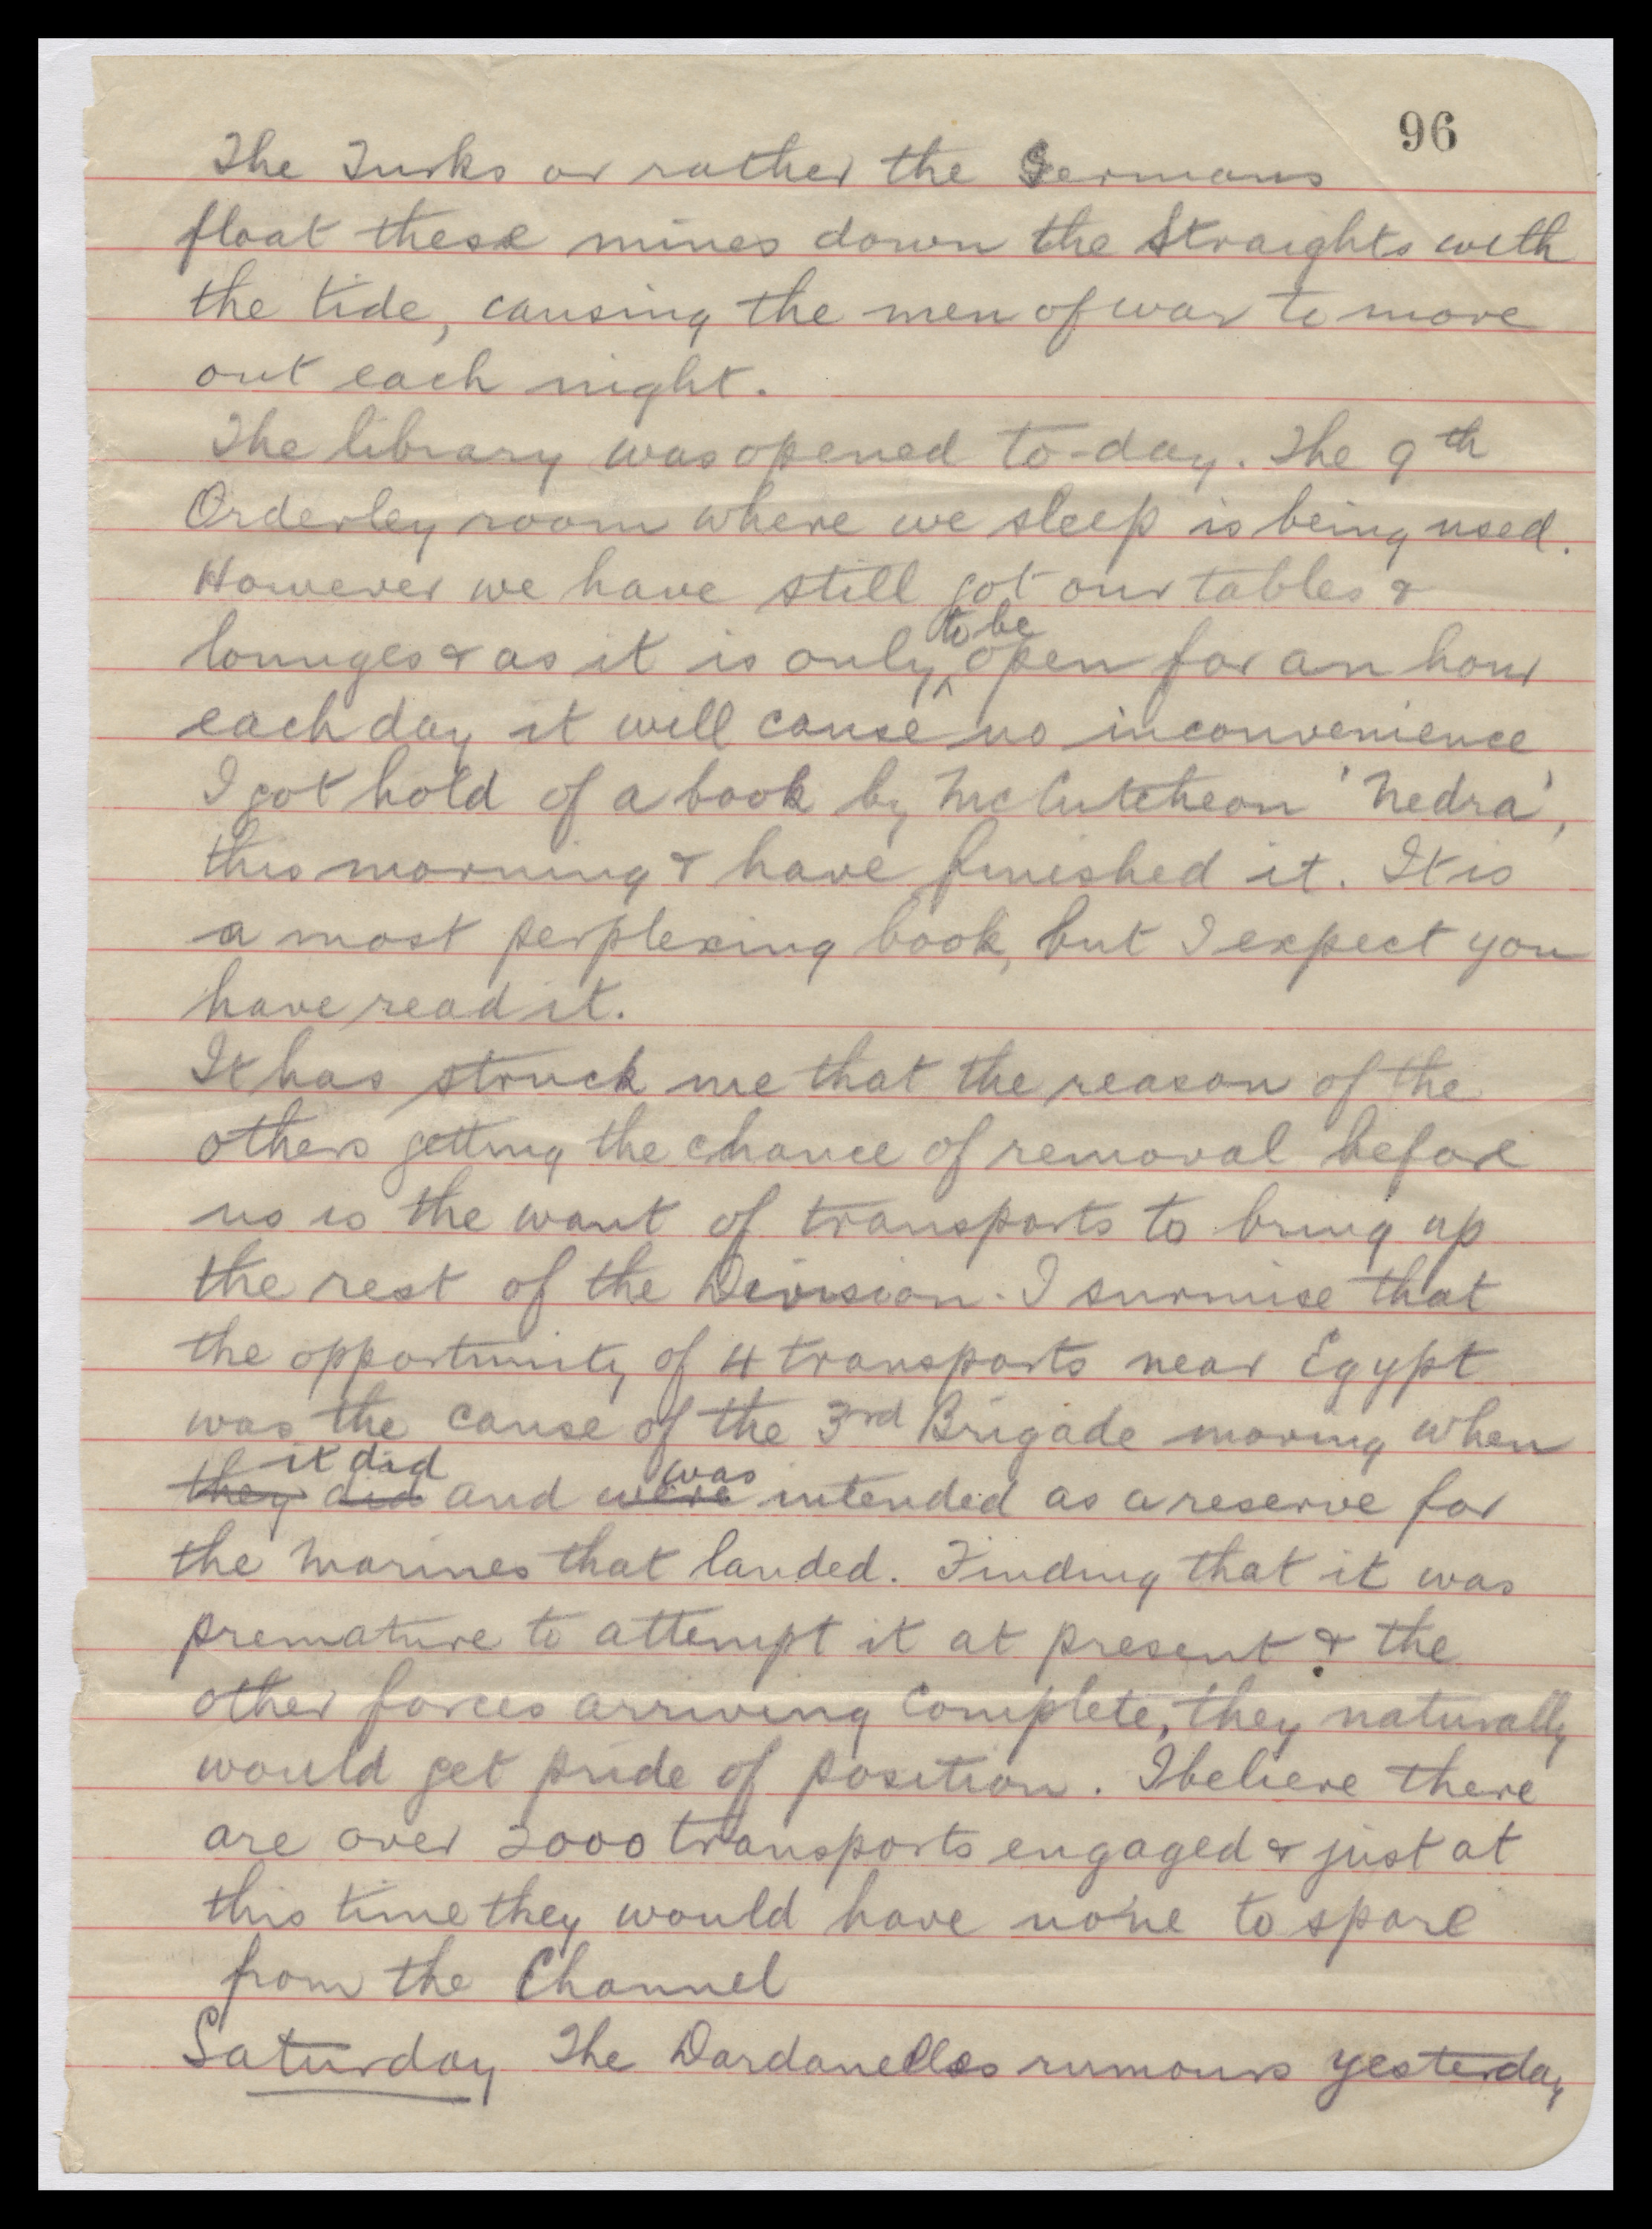 96
The Turks or rather the Germans
float these mines down the Straights with
the tide, causing the men of war to move
out each night.
The library was opened to-day. The 9th
Orderley room where we sleep is being used.
However we have still got our tables &
lounges & as it is only to be open for an hour
each day it will cause no inconvenience
I got hold of a book by McCutcheon 'Nedra',
this morning & have finished it. It is
a most perplexing book, but I expect you
have read it.
It has struck me that the reason of the
others getting the chance of removal before
us is the want of transports to bring up
the rest of the Division. I surmise that
the opportunity of 4 transports near Egypt
was the cause of the 3rd Brigade moving when
they did it did and were was intended as a reserve for
the Marines that landed. Finding that it was
premature to attempt it at present & the
other forces arriving complete, they naturally
would get pride of position. I believe there
are over 2000 transports engaged & just at
this time they would have none to spare
from the Channel
Saturday The Dardanelles rumours yesterday